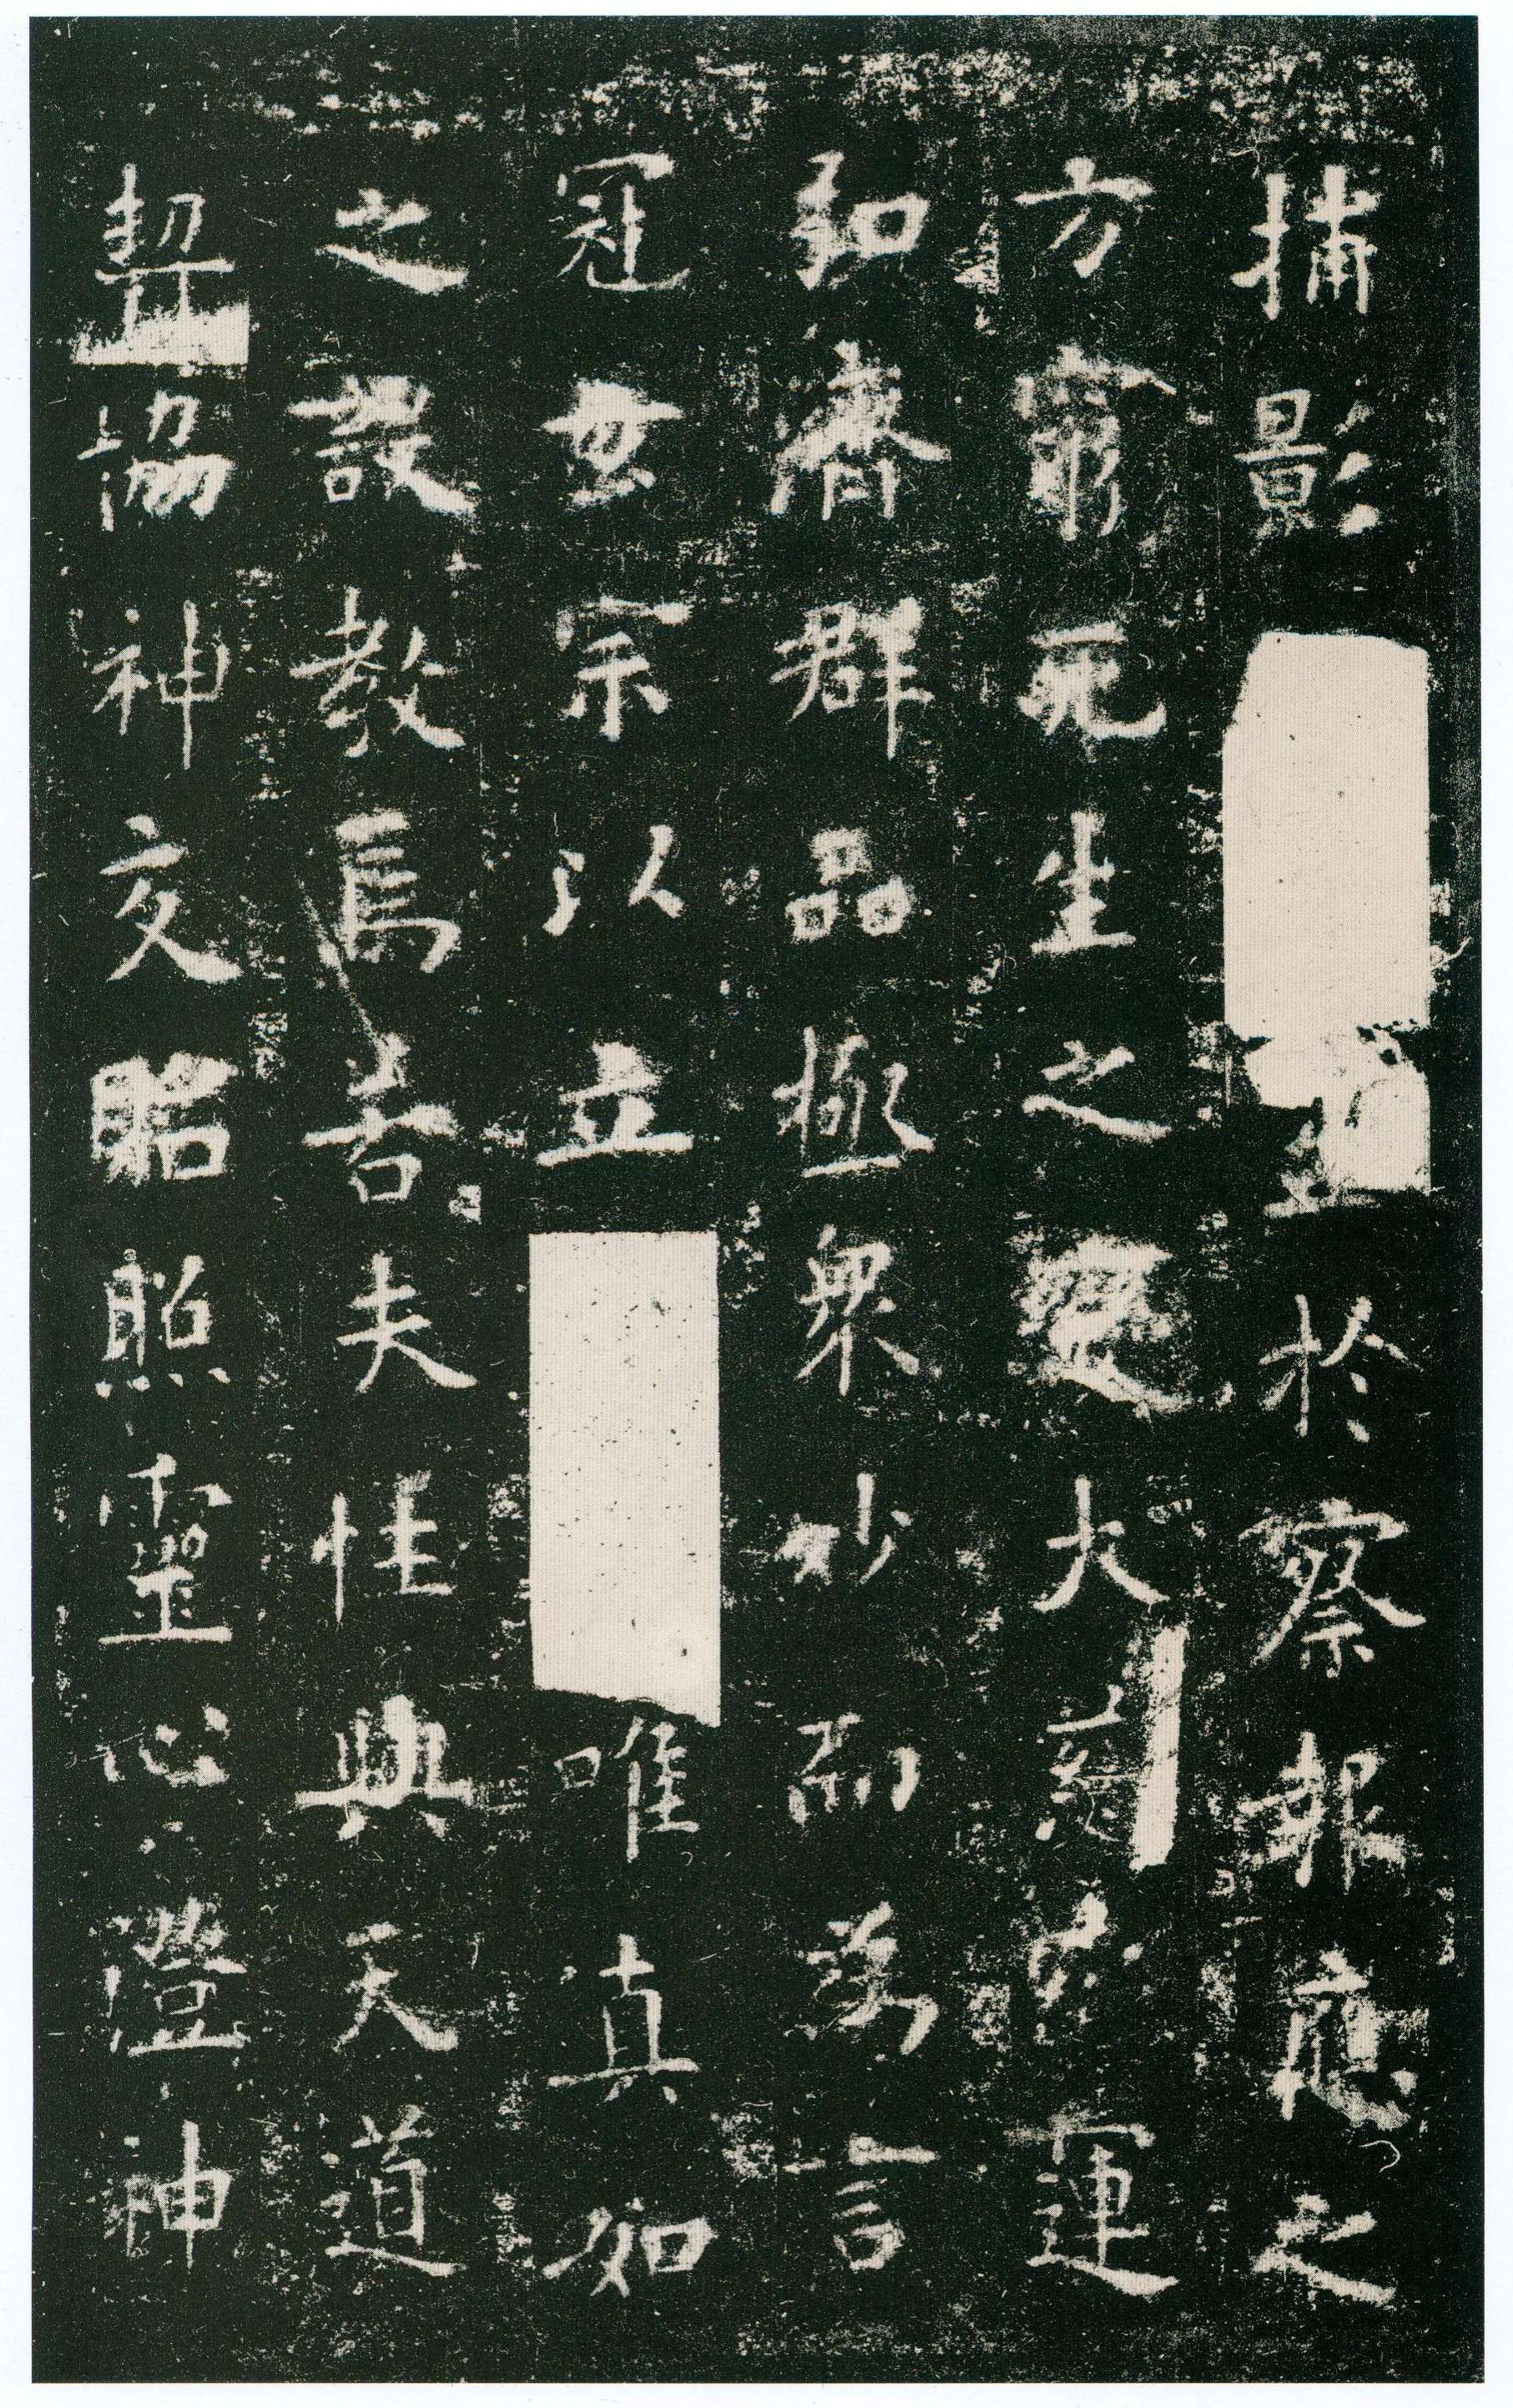 捕影於察報應之
方窮死生之變大慈運
弘濟群品極眾妙而為言
冠玄宗以立唯真如
之設教焉若夫性與天道
契協神交貽照靈心澄神